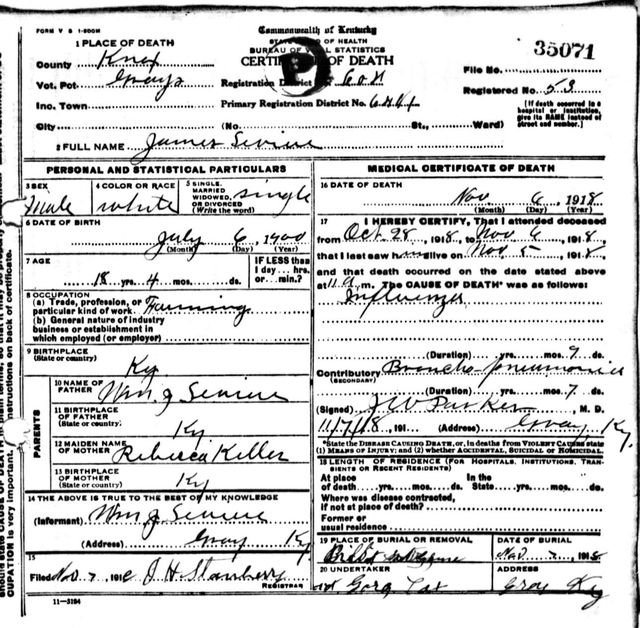 FORM V S 1-500M
Commonwealth of Kentucky
STATE BOARD OF HEALTH
BUREAU OF VITAL STATISTICS
CERTIFICATE OF DEATH
P
35071
File No.
1 PLACE OF DEATH
County Knox
Vot. Pct Grays
Inc. Town
City
Registration District No.
Primary Registration District No.
Registered No. 53
(No. St., Ward)
[If death occurred in a hospital or institution, give its NAME instead of street and number.]
2 FULL NAME James Seviere
PERSONAL AND STATISTICAL PARTICULARS
3 SEX male
4 COLOR OR RACE white
5 SINGLE, MARRIED, WIDOWED, OR DIVORCED (Write the word) single
6 DATE OF BIRTH
July 6, 1900
(Month) (Day) (Year)
7 AGE
18 yrs. 4 mos. ds.
IF LESS than 1 day...hrs. or...min.?
8 OCCUPATION
(a) Trade, profession, or particular kind of work Farming
(b) General nature of industry business or establishment in which employed (or employer)
9 BIRTHPLACE
(State or country) Ky
PARENTS
10 NAME OF FATHER Wm J Seviere
11 BIRTHPLACE OF FATHER
(State or country) Ky
12 MAIDEN NAME OF MOTHER Rebecca Killer
13 BIRTHPLACE OF MOTHER
(State or country) Ky
14 THE ABOVE IS TRUE TO THE BEST OF MY KNOWLEDGE
(Informant) Wm J Seviere
(Address) Gray Ky
15
Filed Nov 7, 191 J H Stanberry
REGISTRAR
11—3184
MEDICAL CERTIFICATE OF DEATH
16 DATE OF DEATH
Nov 6, 1918
(Month) (Day) (Year)
17 I HEREBY CERTIFY, That I attended deceased
from Oct 28, 1918, to Nov 6, 1918,
that I last saw him alive on Nov 5, 1918,
and that death occurred on the date stated above
at 11 a m. The CAUSE OF DEATH* was as follows:
Influenza
(Duration) yrs. mos. 9 ds.
Contributory Broncho pneumonia
(SECONDARY)
(Duration) yrs. mos. 7 ds.
(Signed) J W Parker, M. D.
11/7/18, 191 (Address) Gray, Ky.
*State the DISEASE CAUSING DEATH, or, in deaths from VIOLENT CAUSES state (1) MEANS OF INJURY; and (2) whether ACCIDENTAL, SUICIDAL or HOMICIDAL.
18 LENGTH OF RESIDENCE (FOR HOSPITALS, INSTITUTIONS, TRANSIENTS OR RECENT RESIDENTS)
At place of death yrs. mos. ds.
In the State yrs. mos. ds.
Where was disease contracted,
if not at place of death?
Former or
usual residence
19 PLACE OF BURIAL OR REMOVAL
DATE OF BURIAL
Nov 7, 1918
20 UNDERTAKER
ADDRESS
Gray Ky